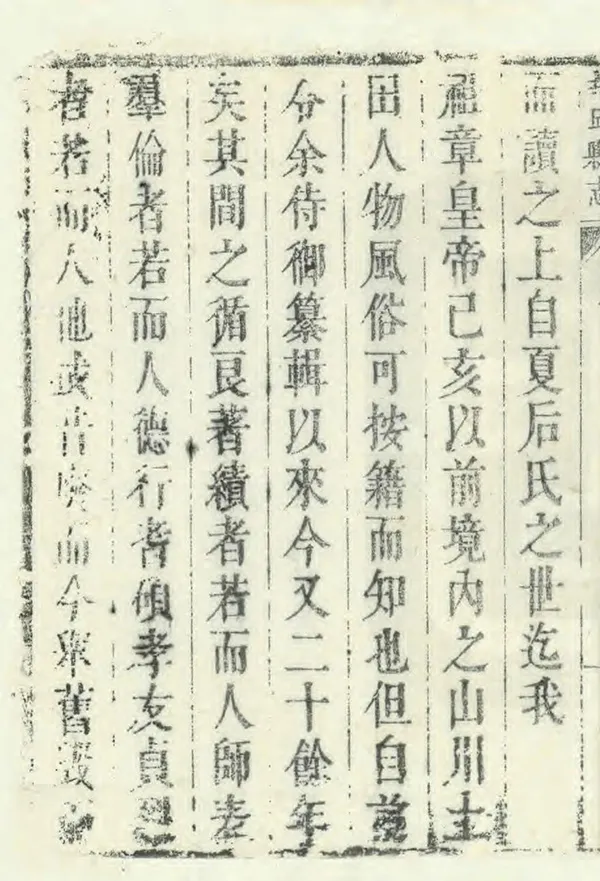 邱縣志
而讀之上自夏后氏之世迄我
章皇帝己亥以前境內之山川土
田人物風俗可按籍而知也但自前
令余侍御纂輯以來今又二十餘年
矣其間之循良著績者若而人師表
羣倫者若而人德行耆碩孝友貞
者若而人他或昔廢而今舉舊